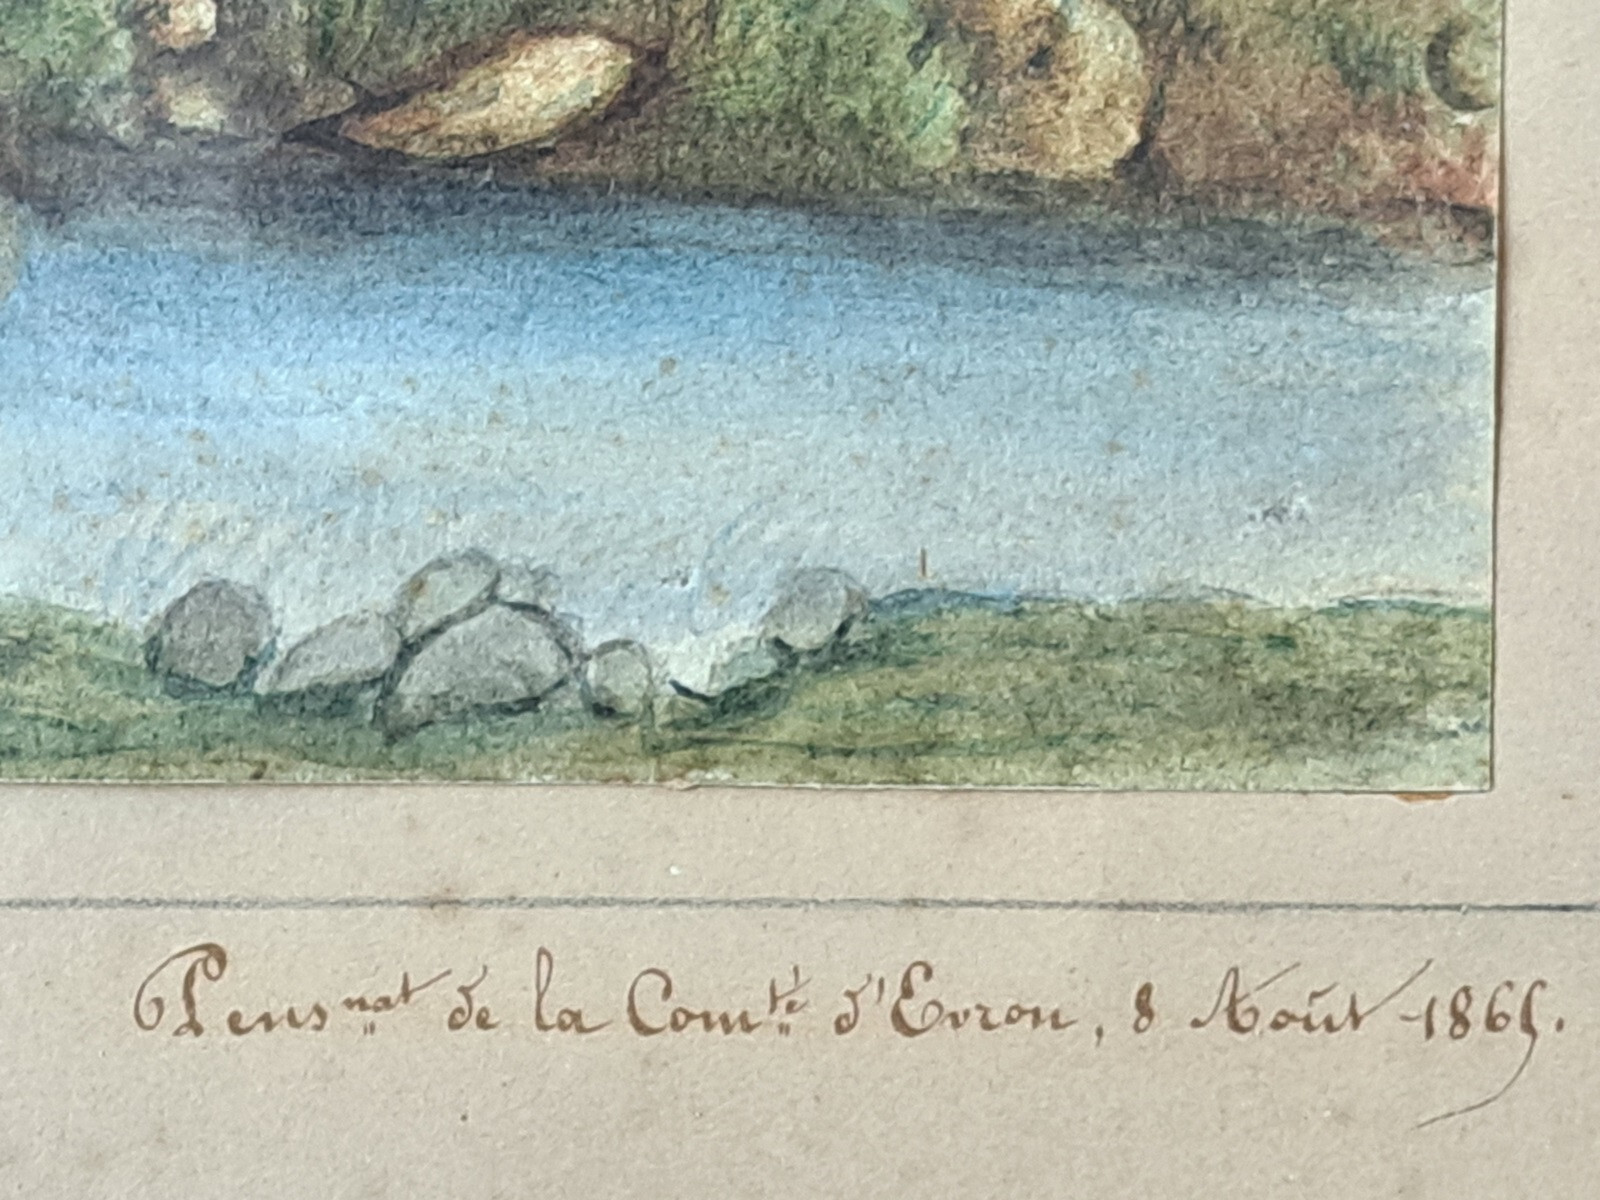 Pensnat de la Comté d'Evron, 8 Août 1865.